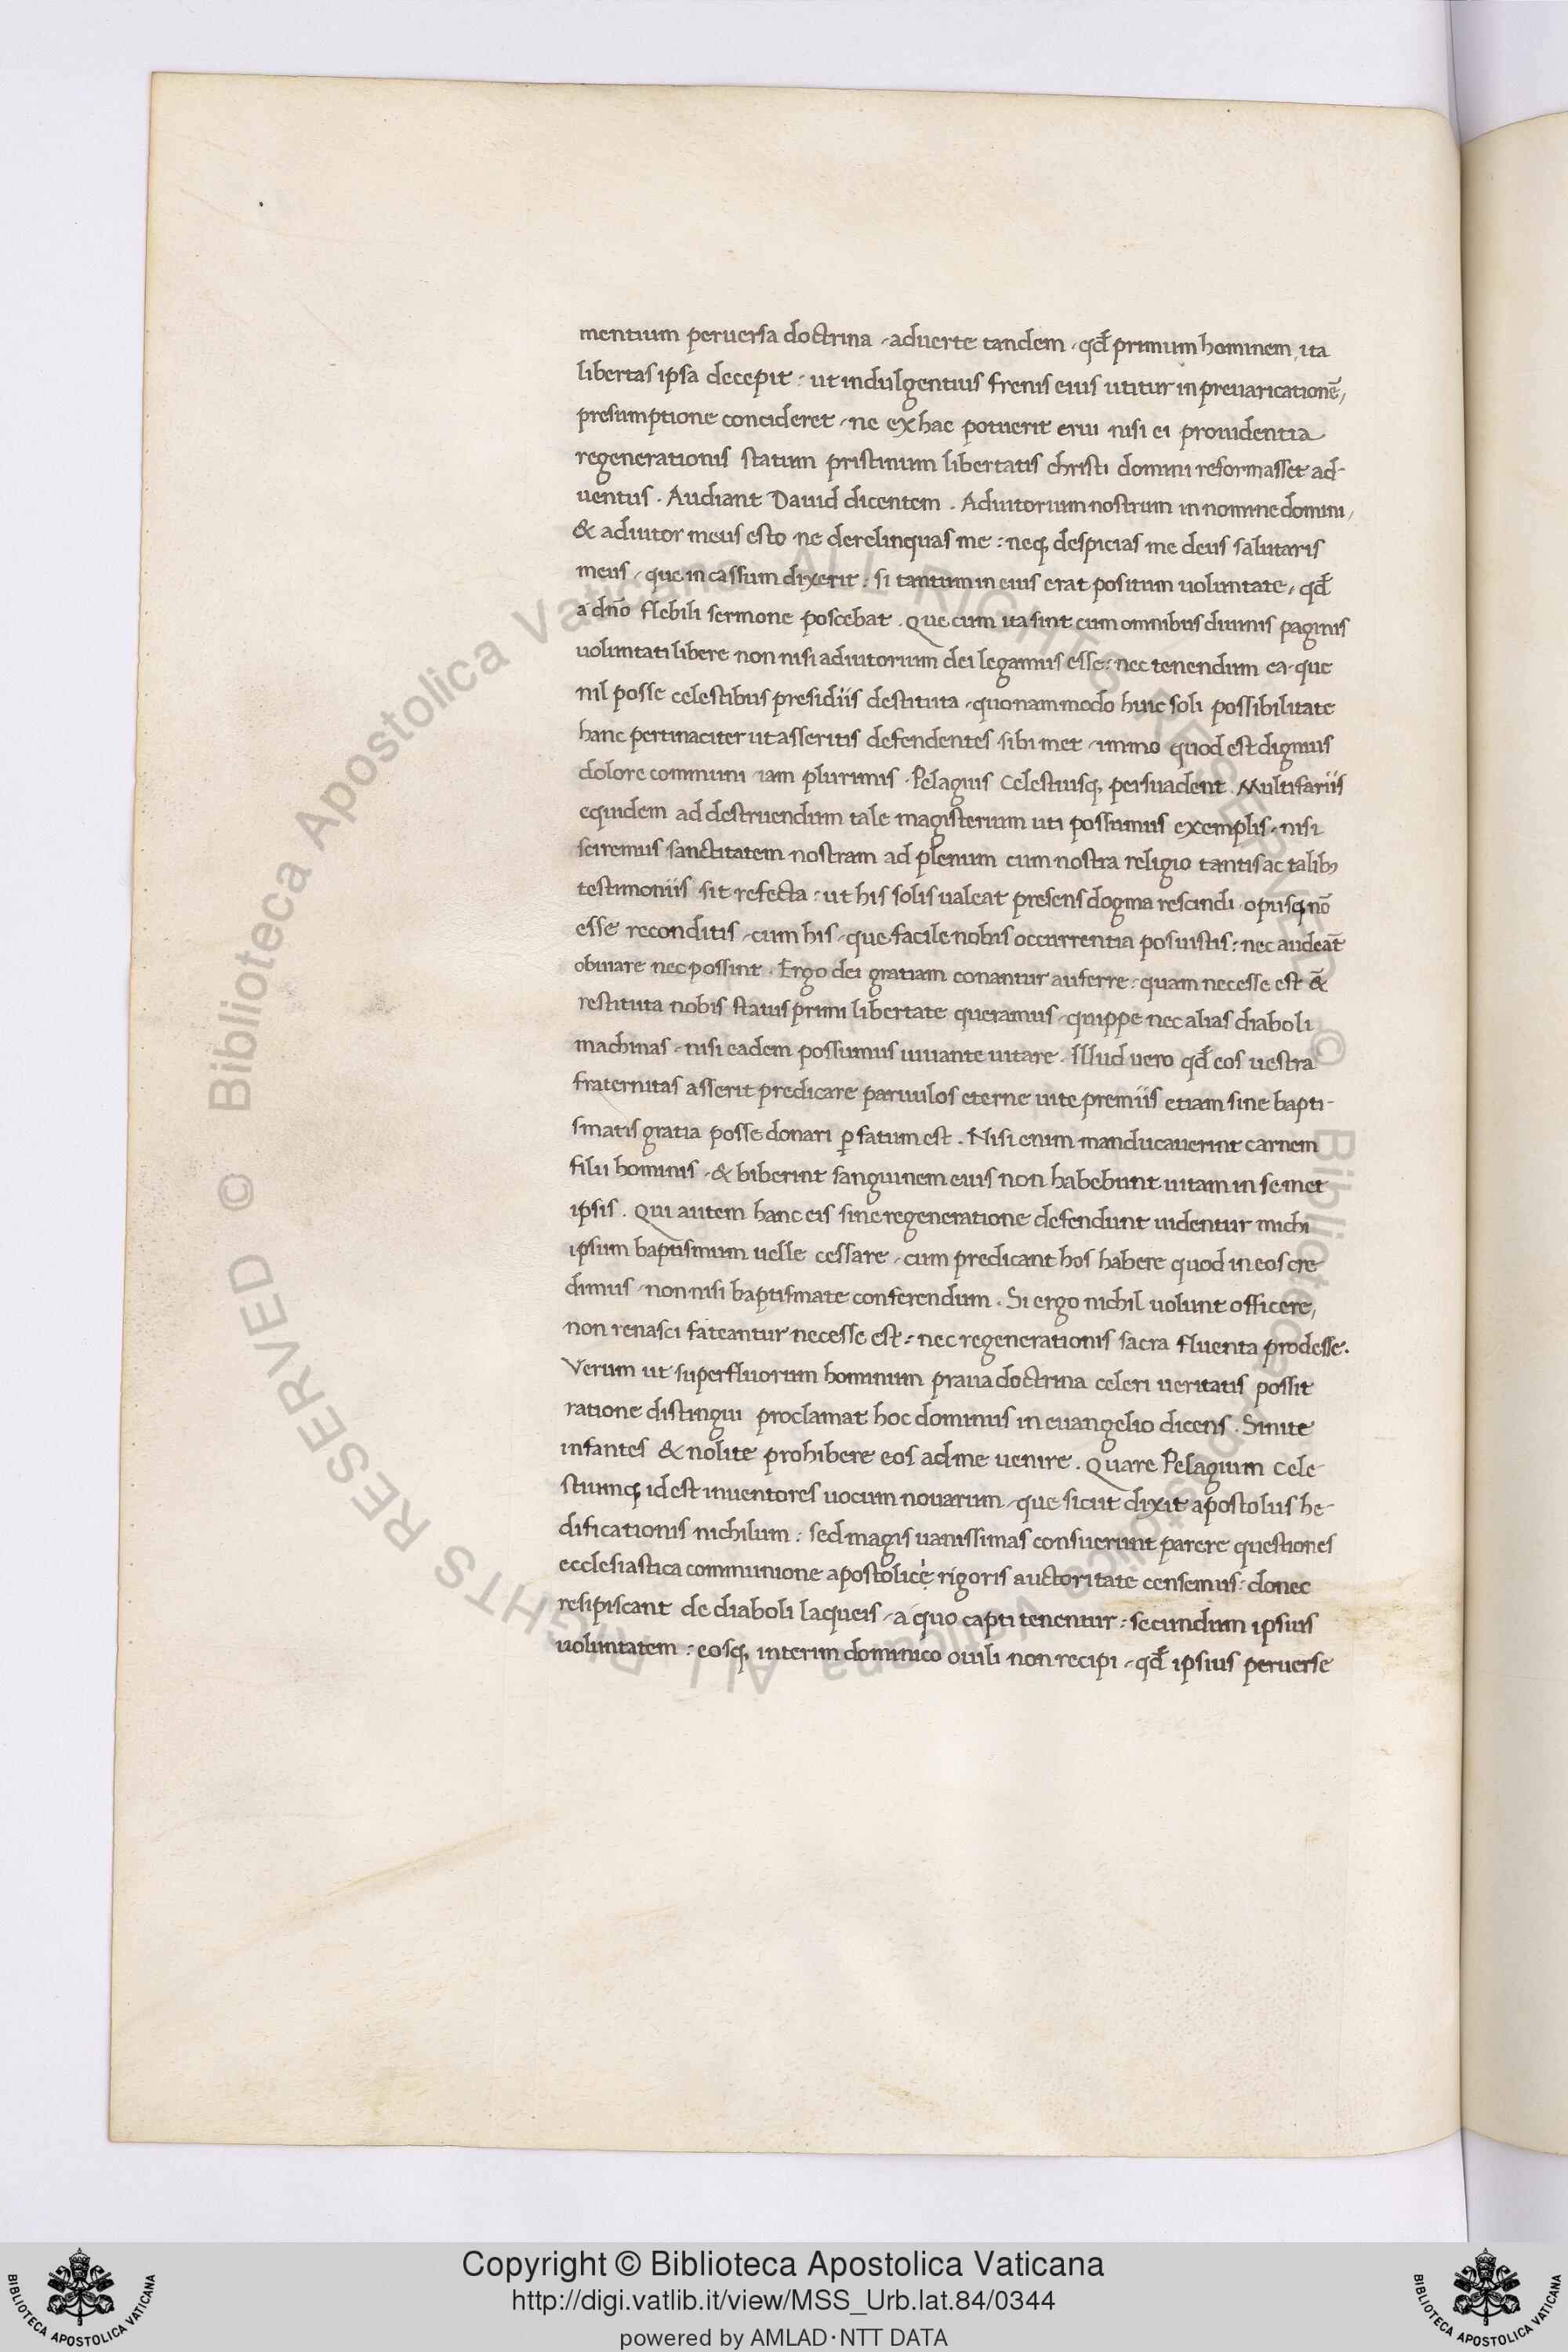 mentium peruersa doctrina, aduerte tandem, qd̄ primum hominem, ita
libertas ipsa decepit: ut indulgentius frenis eius utitur in preuaricationē,
presumptione concideret, ne ex hac potuerit erui nisi ei prouidentia
regenerationis statum pristinum libertatis christi domini reformasset ad-
uentus. Audiant Dauid dicentem. Adiutorium nostrum in nomine domini,
& adiutor meus esto ne derelinquas me: neq; despicias me deus salutaris
meus, que in cassum dixerit: si tantum in eius erat positum uoluntate, qd̄
a dn̄o flebili sermone poscebat. Que cum ita sint cum omnibus diuinis paginis
uoluntati libere non nisi adiutorium dei legamus esse: nec tenendum ea, que
nil posse celestibus presidiis destituta, quonam modo huic soli possibilitate
hanc pertinaciter ut asseritis defendentes sibi met, immo quod est dignius
dolore communi iam plurimis, Pelagius Celestiusq; persuadent. Multifariis
equidem ad destruendum tale magisterium uti possumus exemplis, nisi
sciremus sanctitatem nostram ad plenum cum nostra religio tantis ac talib;
testimoniis sit refecta: ut his solis ualeat presens dogma rescindi, opusq; nō
esse reconditis, cum his, que facile nobis occurrentia posuistis: nec audeāt
obuiare nec possint. Ergo dei gratiam conantur auferre: quam necesse est &̄
restituta nobis status primi libertate queramus, quippe nec alias diaboli
machinas, nisi eadem possumus iuuante uitare. Illud uero qd̄ eos uestra
fraternitas asserit predicare paruulos eterne uite premiis etiam sine bapti-
smatis gratia posse donari ꝑfatum est. Nisi enim manducauerint carnem
filii hominis, & biberint sanguinem eius non habebunt uitam in se met
ipsis. Qui autem hanc eis sine regeneratione defendunt uidentur michi
ipsum baptismum uelle cessare, cum predicant hos habere quod in eos cre
dimus, non nisi baptismate conferendum. Si ergo nichil uolunt officere,
non renasci fateantur necesse est: nec regenerationis sacra fluenta prodesse.
Verum ut superfluorum hominum praua doctrina celeri ueritatis possit
ratione distingui proclamat hoc dominus in euangelio dicens. Sinite
infantes & nolite prohibere eos ad me uenire. Quare Pelagium Cele-
stiumq; id est inuentores uocum nouarum, que sicut dixit apostolus he-
dificationis nichilum: sed magis uanissimas consuerunt parere questiones
ecclesiastica communione apostolice rigoris auctoritate censemus: donec
resipiscant de diaboli laqueis, a quo capti tenentur: secundum ipsius
uoluntatem: eosq; interim dominico ouili non recipi, qd̄ ipsius peruerse
© Biblioteca Apostolica Vaticana ALL RIGHTS RESERVED © Biblioteca Apostolica Vaticana ALL RIGHTS RESERVED
Copyright © Biblioteca Apostolica Vaticana
http://digi.vatlib.it/view/MSS_Urb.lat.84/0344
powered by AMLAD·NTT DATA
BIBLIOTECA APOSTOLICA VATICANA
BIBLIOTECA APOSTOLICA VATICANA